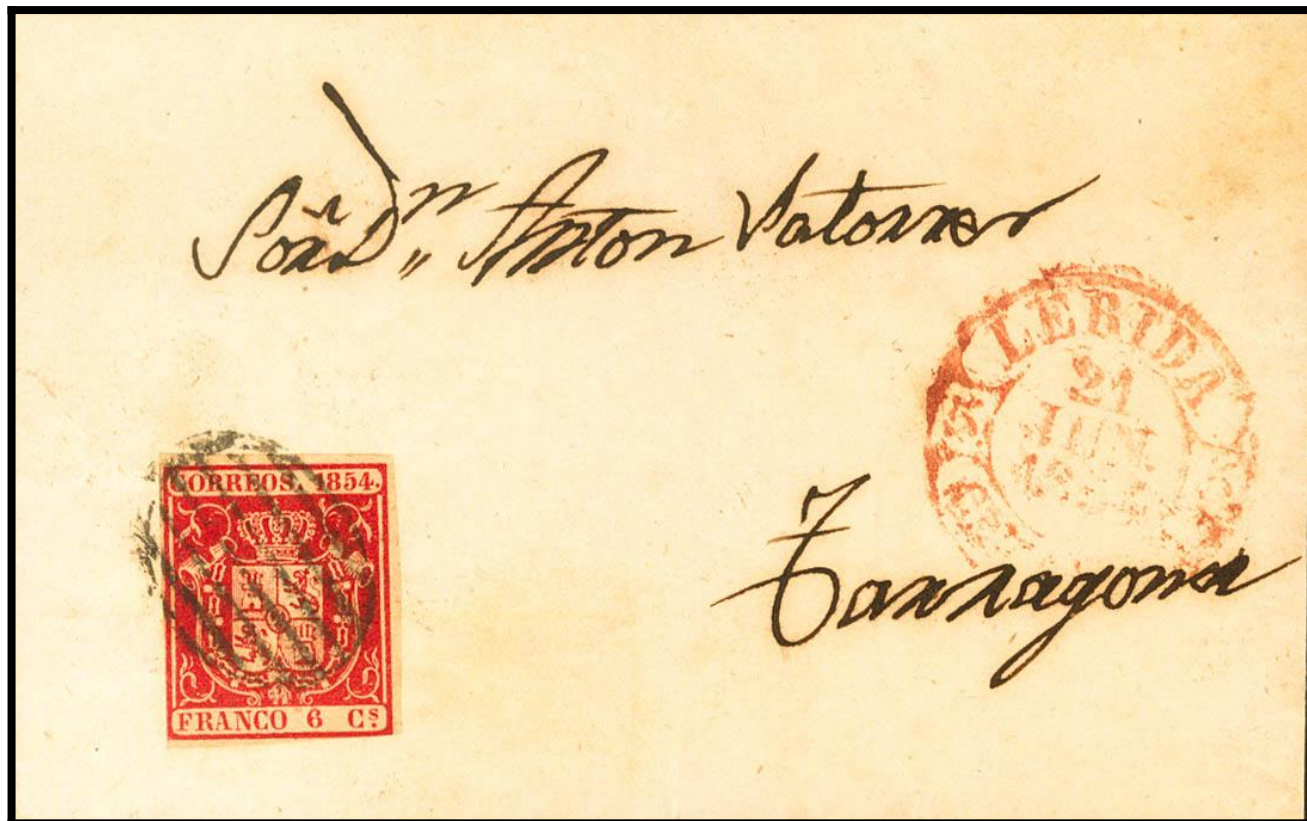 Sor. Dn. Anton Satorres
LERIDA
21
JUN
Tarragona
CORREOS. 1854.
FRANCO 6 Cs.